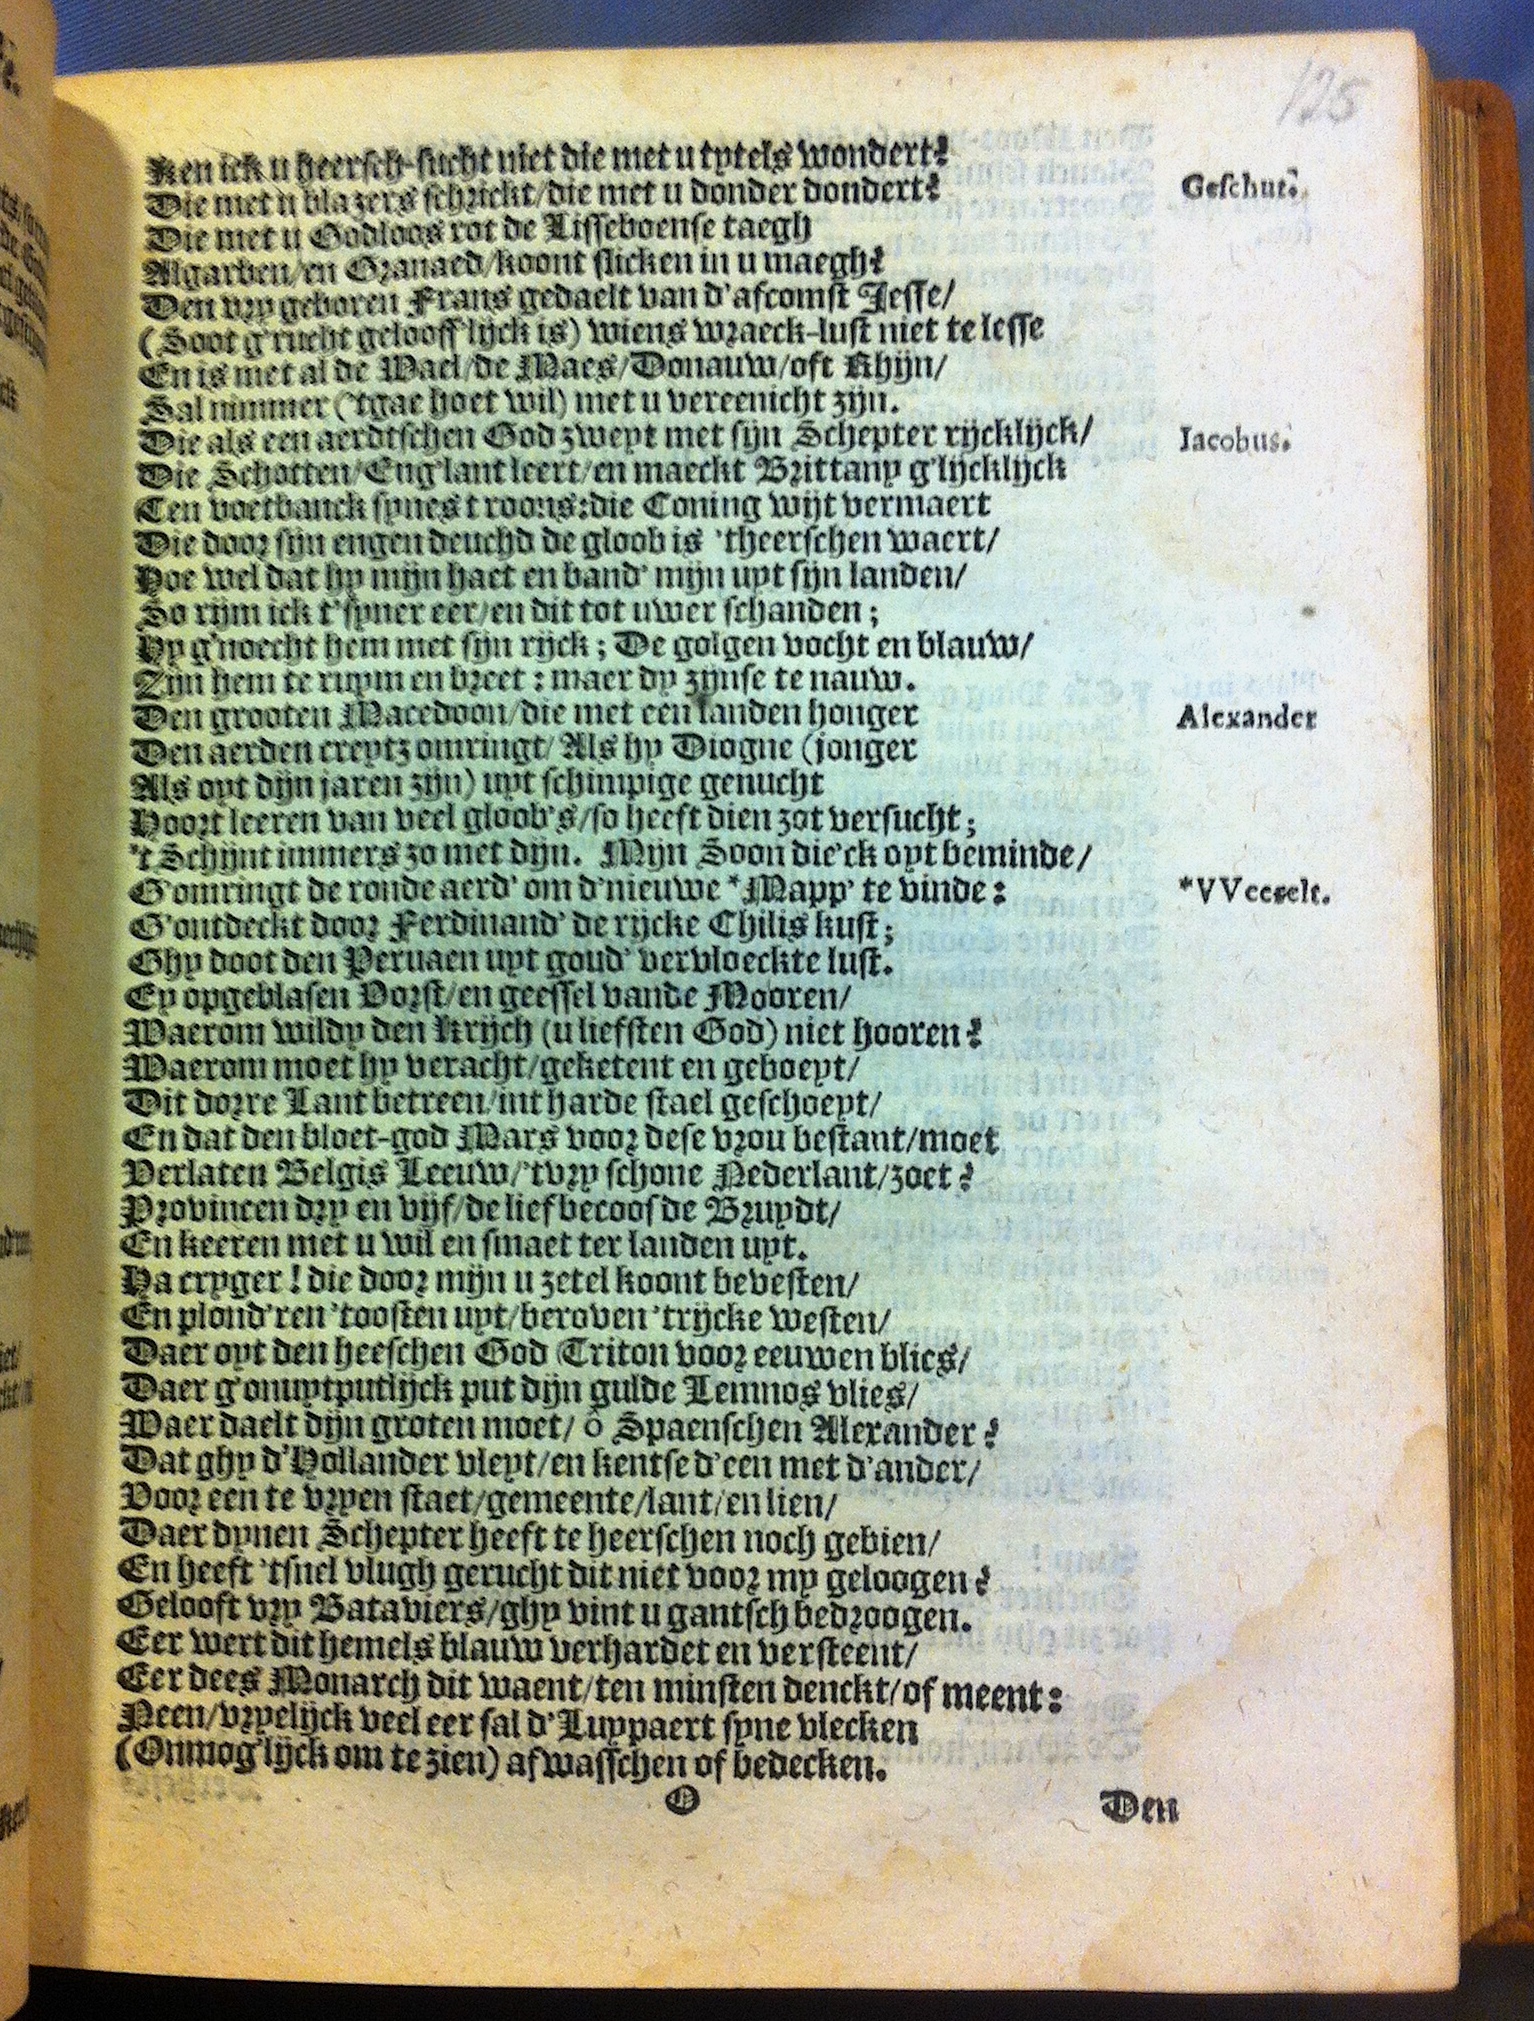 125
Ken ick u heersch-sucht niet die met u tytels wondert?
Die met u blazers schrickt/die met u donder dondert? Geschut.
Die met u Godloos rot de Lisseboense taegh
Algarben/en Granaed/koont slicken in u maegh?
Den vry geboren Frans gedaelt van d'afcomst Jesse/
(Soot g'rucht gelooff'lijck is) wiens wraeck-lust niet te lesse
En is met al de Wael/de Maes/Donauw/oft Rhijn/
Sal nimmer ('tgae hoet wil) met u vereenicht zijn.
Die als een aerdtschen God zweyt met sijn Schepter rijcklijck/ Iacobus.
Die Schotten/Eng'lant leert/en maeckt Brittany g'lijcklijck
Ten voetbanck synes troons:die Coning wijt vermaert
Die door sijn engen deuchd de gloob is 'theerschen waert/
Hoe wel dat hy mijn haet en band' mijn uyt sijn landen/
So rijm ick t'syner eer/en dit tot uwer schanden;
Hy g'noecht hem met sijn rijck; De golgen vocht en blauw/
Zijn hem te ruym en breet: maer dy zijnse te nauw.
Den grooten Macedoon/die met een landen honger Alexander
Den aerden creytz omringt/Als hy Diogne (jonger
Als oyt dijn jaren zijn) uyt schimpige genucht
Hoort leeren van veel gloob's/so heeft dien zot versucht;
't Schijnt immers zo met dijn. Mijn Soon die'ck oyt beminde/
G'omringt de ronde aerd' om d'nieuwe *Mapp' te vinde: *VVeerelt.
G'ontdeckt door Ferdinand' de rijcke Chilis kust;
Ghy doot den Peruaen uyt goud' vervloeckte lust.
Ey opgeblasen Vorst/en geessel vande Mooren/
Waerom wildy den Krijch (u liefsten God) niet hooren?
Waerom moet hy veracht/geketent en geboeyt/
Dit dorre Lant betreen/int harde stael geschoeyt/
En dat den bloet-god Mars voor dese vrou bestant/moet
Verlaten Belgis Leeuw/'tvry schone Nederlant/zoet?
Provincen dry en vijf/de lief becoosde Bruydt/
En keeren met u wil en smaet ter landen uyt.
Ha cryger! die door mijn u zetel koont bevesten/
En plond'ren 'toosten uyt/beroven 'trijcke westen/
Daer oyt den heeschen God Triton voor eeuwen blies/
Daer g'onuytputlijck put dijn gulde Lemnos vlies/
Waer daelt dijn groten moet/ ô Spaenschen Alexander?
Dat ghy d'Hollander vleyt/en kentse d'een met d'ander/
Voor een te vryen staet/gemeente/lant/en lien/
Daer dynen Schepter heeft te heerschen noch gebien/
En heeft 'tsnel vlugh gerucht dit niet voor my geloogen?
Gelooft vry Bataviers/ghy vint u gantsch bedroogen.
Eer wert dit hemels blauw verhardet en versteent/
Eer dees Monarch dit waent/ten minsten denckt/of meent:
Neen/vryelijck veel eer sal d'Luypaert syne vlecken
(Onmog'lijck om te zien) afwasschen of bedecken.
Den